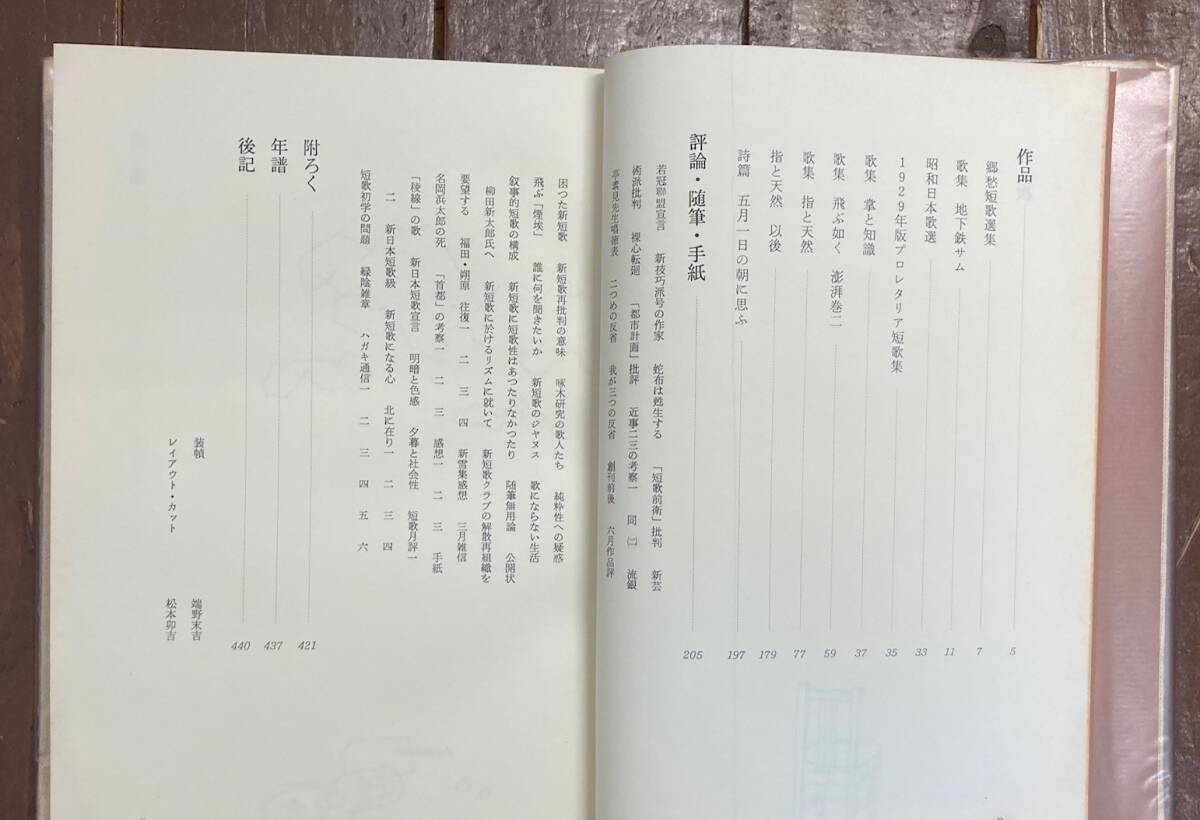 作品 5
郷愁短歌選集 7
歌集 地下鉄サム 11
昭和日本歌選 33
1929年版プロレタリア短歌集 35
歌集 掌と知識 37
歌集 飛ぶ如く 澎湃巻二 59
歌集 指と天然 77
指と天然 以後 179
詩篇 五月一日の朝に思ふ 197
評論・随筆・手紙 205
若冠聯盟宣言 新技巧派号の作家 蛇布は甦生する 「短歌前衛」批判 新芸
術派批判 裸心転廻 「都市計画」批評 近事二三の考察一 同㈡ 流銀
亭素見先生唱徳表 二つめの反省 我が三つの反省 創刊前後 六月作品評
困つた新短歌 新短歌再批判の意味 啄木研究の歌人たち 純粋性への疑惑
飛ぶ「煙埃」 誰に何を聞きたいか 新短歌のジヤヌス 歌にならない生活
叙事的短歌の構成 新短歌に短歌性はあつたりなかつたり 随筆無用論 公開状
柳田新太郎氏へ 新短歌に於けるリズムに就いて 新短歌クラブの解散再組織を
要望する 福田・朔原 往復一 二 三 四 新雪集感想 三月雑信
名岡浜太郎の死 「首都」の考察一 二 三 感想一 二 三 手紙
「稜線」の歌 新日本短歌宣言 明暗と色感 夕暮と社会性 短歌月評一
二 新日本短歌級 新短歌になる心 北に在り一 二 三 四
短歌初学の問題 緑陰雑章 ハガキ通信一 二 三 四 五 六
附ろく 421
年譜 437
後記 440
装幀 端野末吉
レイアウト・カット 松本卯吉